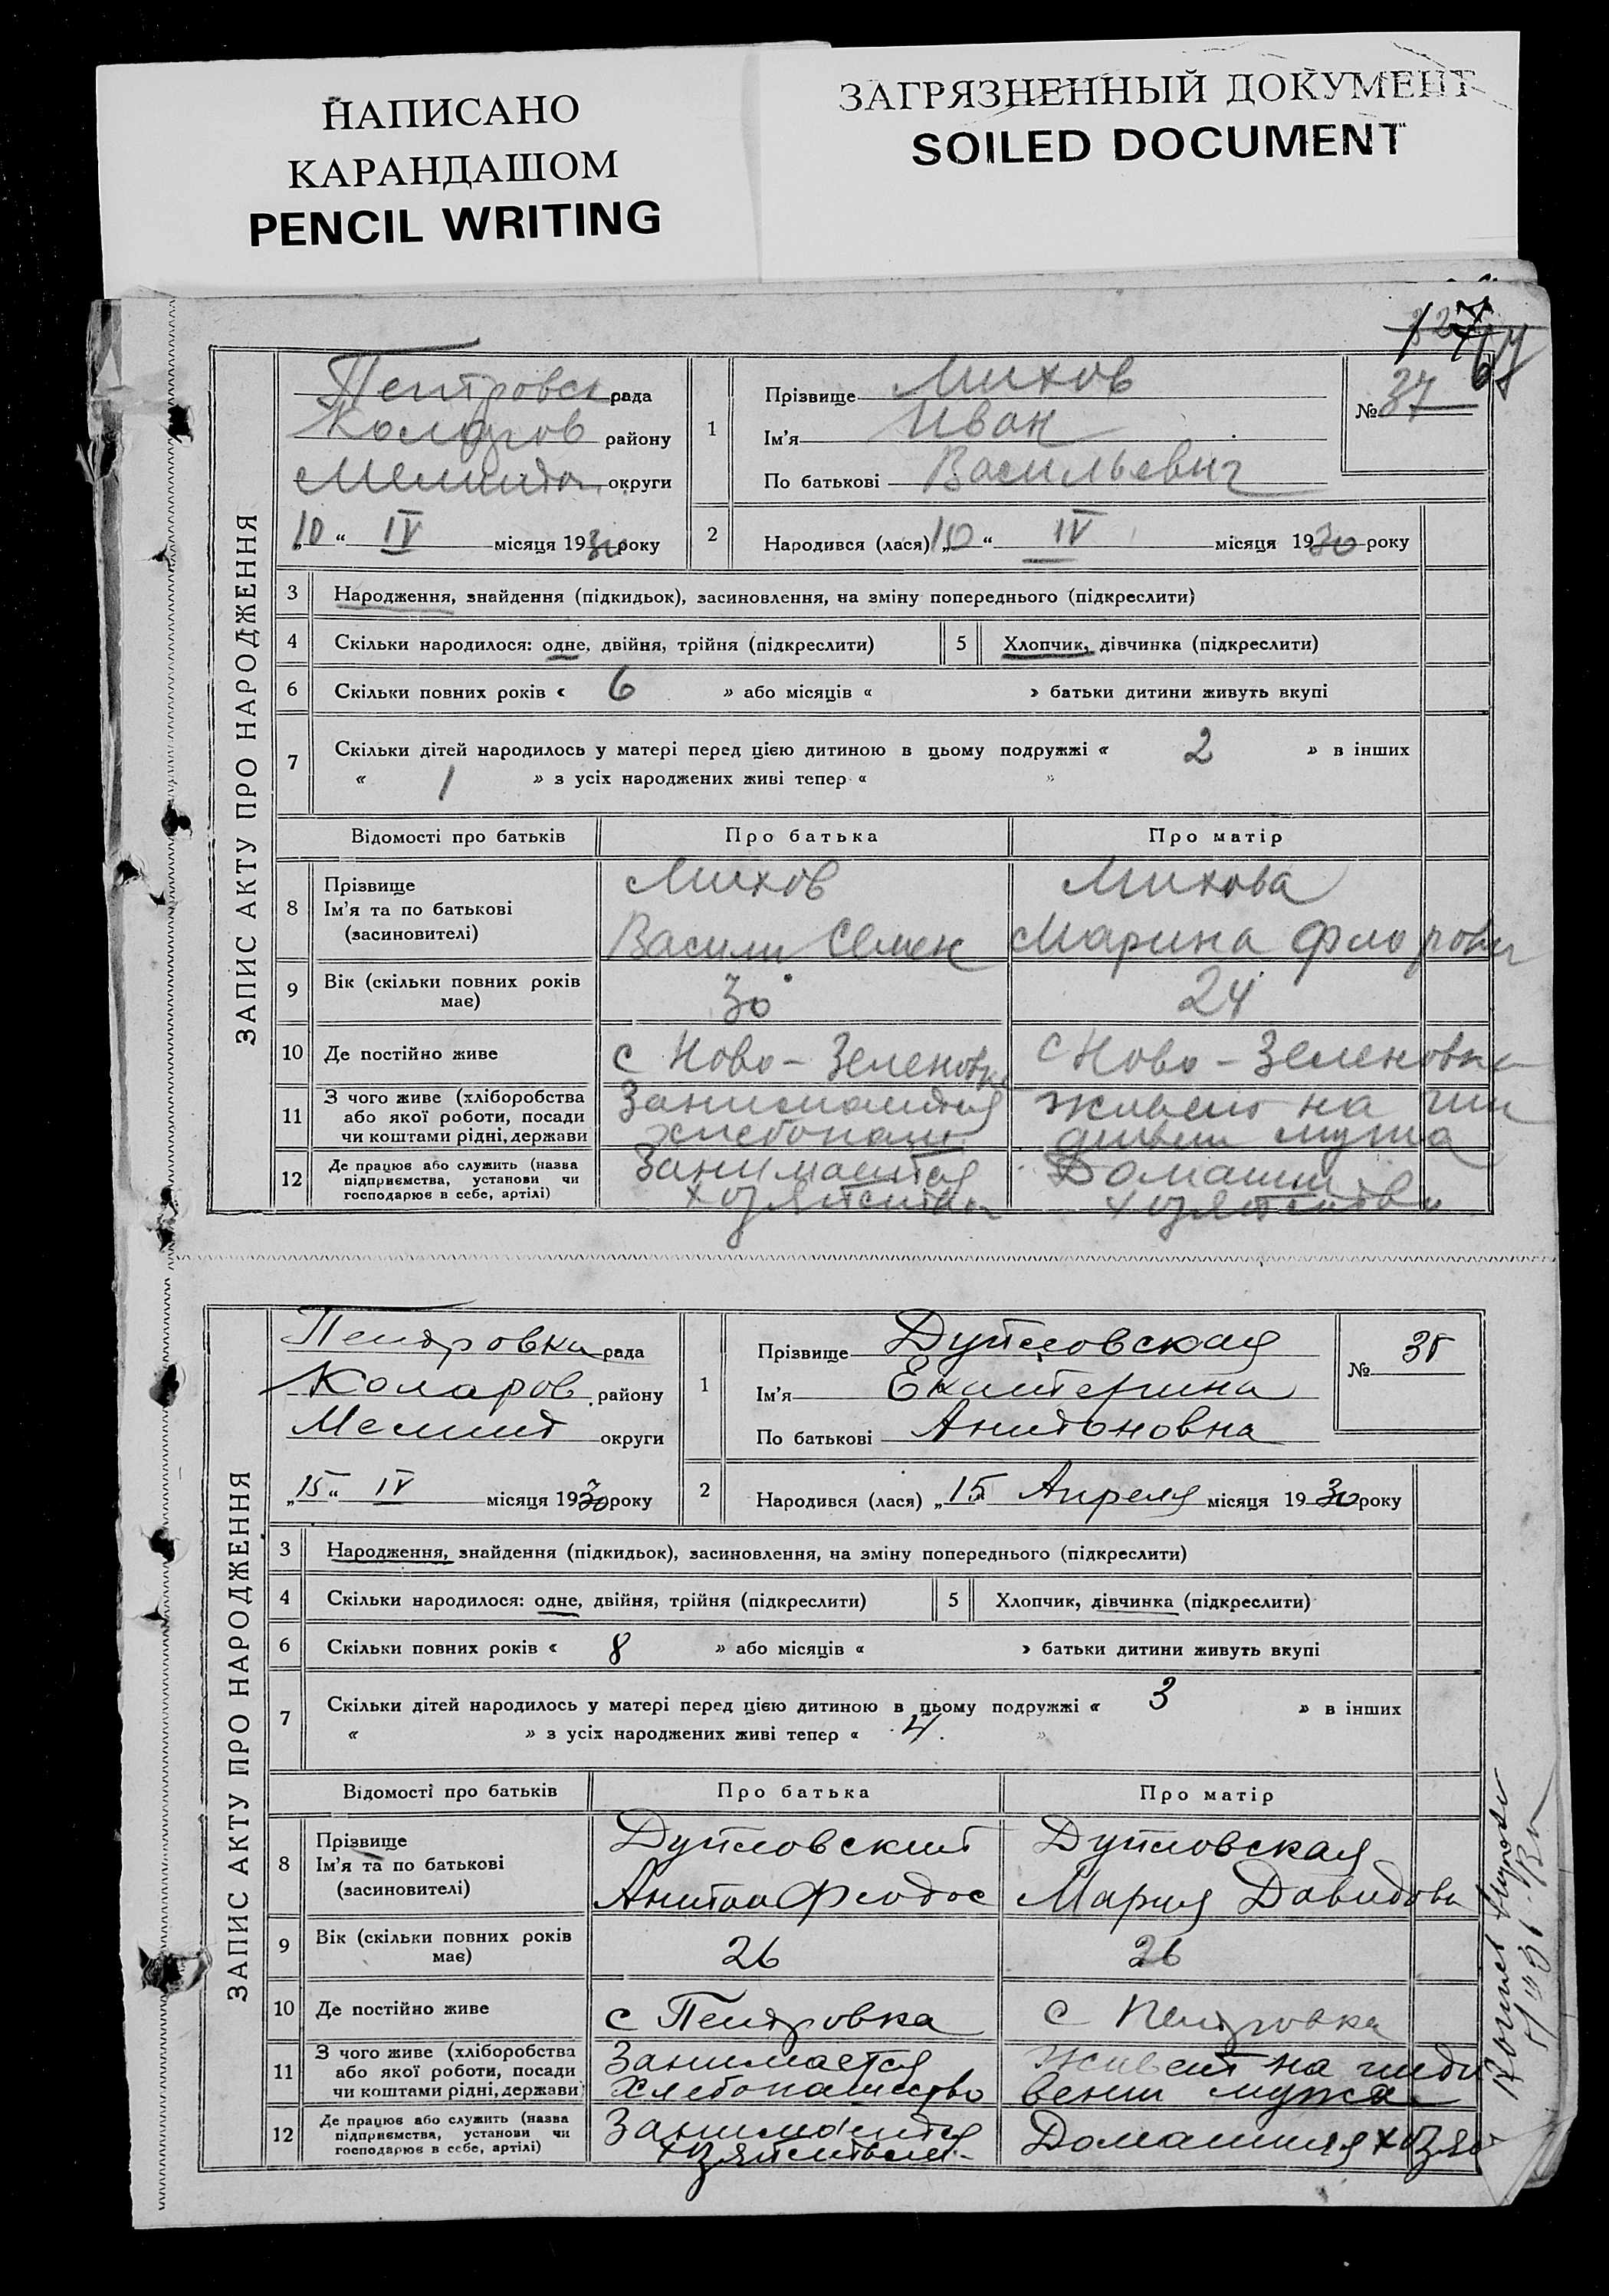 НАПИСАНО
КАРАНДАШОМ
PENCIL WRITING
ЗАГРЯЗНЕННЫЙ ДОКУМЕНТ
SOILED DOCUMENT
ЗАПИС АКТУ ПРО НАРОДЖЕННЯ
Петровск рада
Коларов району
Мелито округи
„10“ IV місяця 1930 року
1 Прізвище Михов
Ім'я Иван
По батькові Васильевич
№ 37
2 Народився (лася) „10“ IV місяця 1930 року
3 Народження, знайдення (підкидьок), засиновлення, на зміну попереднього (підкреслити)
4 Скільки народилося: одне, двійня, трійня (підкреслити) 5 Хлопчик, дівчинка (підкреслити)
6 Скільки повних років « 6 » або місяців « » батьки дитини живуть вкупі
7 Скільки дітей народилось у матері перед цією дитиною в цьому подружжі « 2 » в інших
« 1 » з усіх народжених живі тепер « »
Відомості про батьків Про батька Про матір
8 Прізвище Ім'я та по батькові (засиновителі) Михов Михова
Васили Семен Марина Флорови
9 Вік (скільки повних років має) 30 24
10 Де постійно живе с Ново-Зеленовка с Ново-Зеленовка
11 З чого живе (хліборобства
або якої роботи, посади
чи коштами рідні, держави Занимаится на мужа
12 Де працює або служить (назва
підприємства, установи чи
господарює в себе, артілі) Занимаится Домашни
ЗАПИС АКТУ ПРО НАРОДЖЕННЯ
Петровка рада
Коларов району
Мелит округи
„15“ IV місяця 1930 року
1 Прізвище
Ім'я Екатерина
По батькові Антоновна
№ 38
2 Народився (лася) „15 Апреля місяця 1930 року
3 Народження, знайдення (підкидьок), засиновлення, на зміну попереднього (підкреслити)
4 Скільки народилося: одне, двійня, трійня (підкреслити) 5 Хлопчик, дівчинка (підкреслити)
6 Скільки повних років « 8 » або місяців « » батьки дитини живуть вкупі
7 Скільки дітей народилось у матері перед цією дитиною в цьому подружжі « 3 » в інших
« » з усіх народжених живі тепер « 4 »
Відомості про батьків Про батька Про матір
8 Прізвище Ім'я та по батькові (засиновителі)
Антон Феодос Мария Давидовн
9 Вік (скільки повних років має) 26 26
10 Де постійно живе с Петровка с Петровка
11 З чого живе (хліборобства
або якої роботи, посади
чи коштами рідні, держави) Занимается хлебопашество живеит на ижди вении мужа
12 Де працює або служить (назва
підприємства, установи чи
господарює в себе, артілі) Занимаится Домашния хозяй